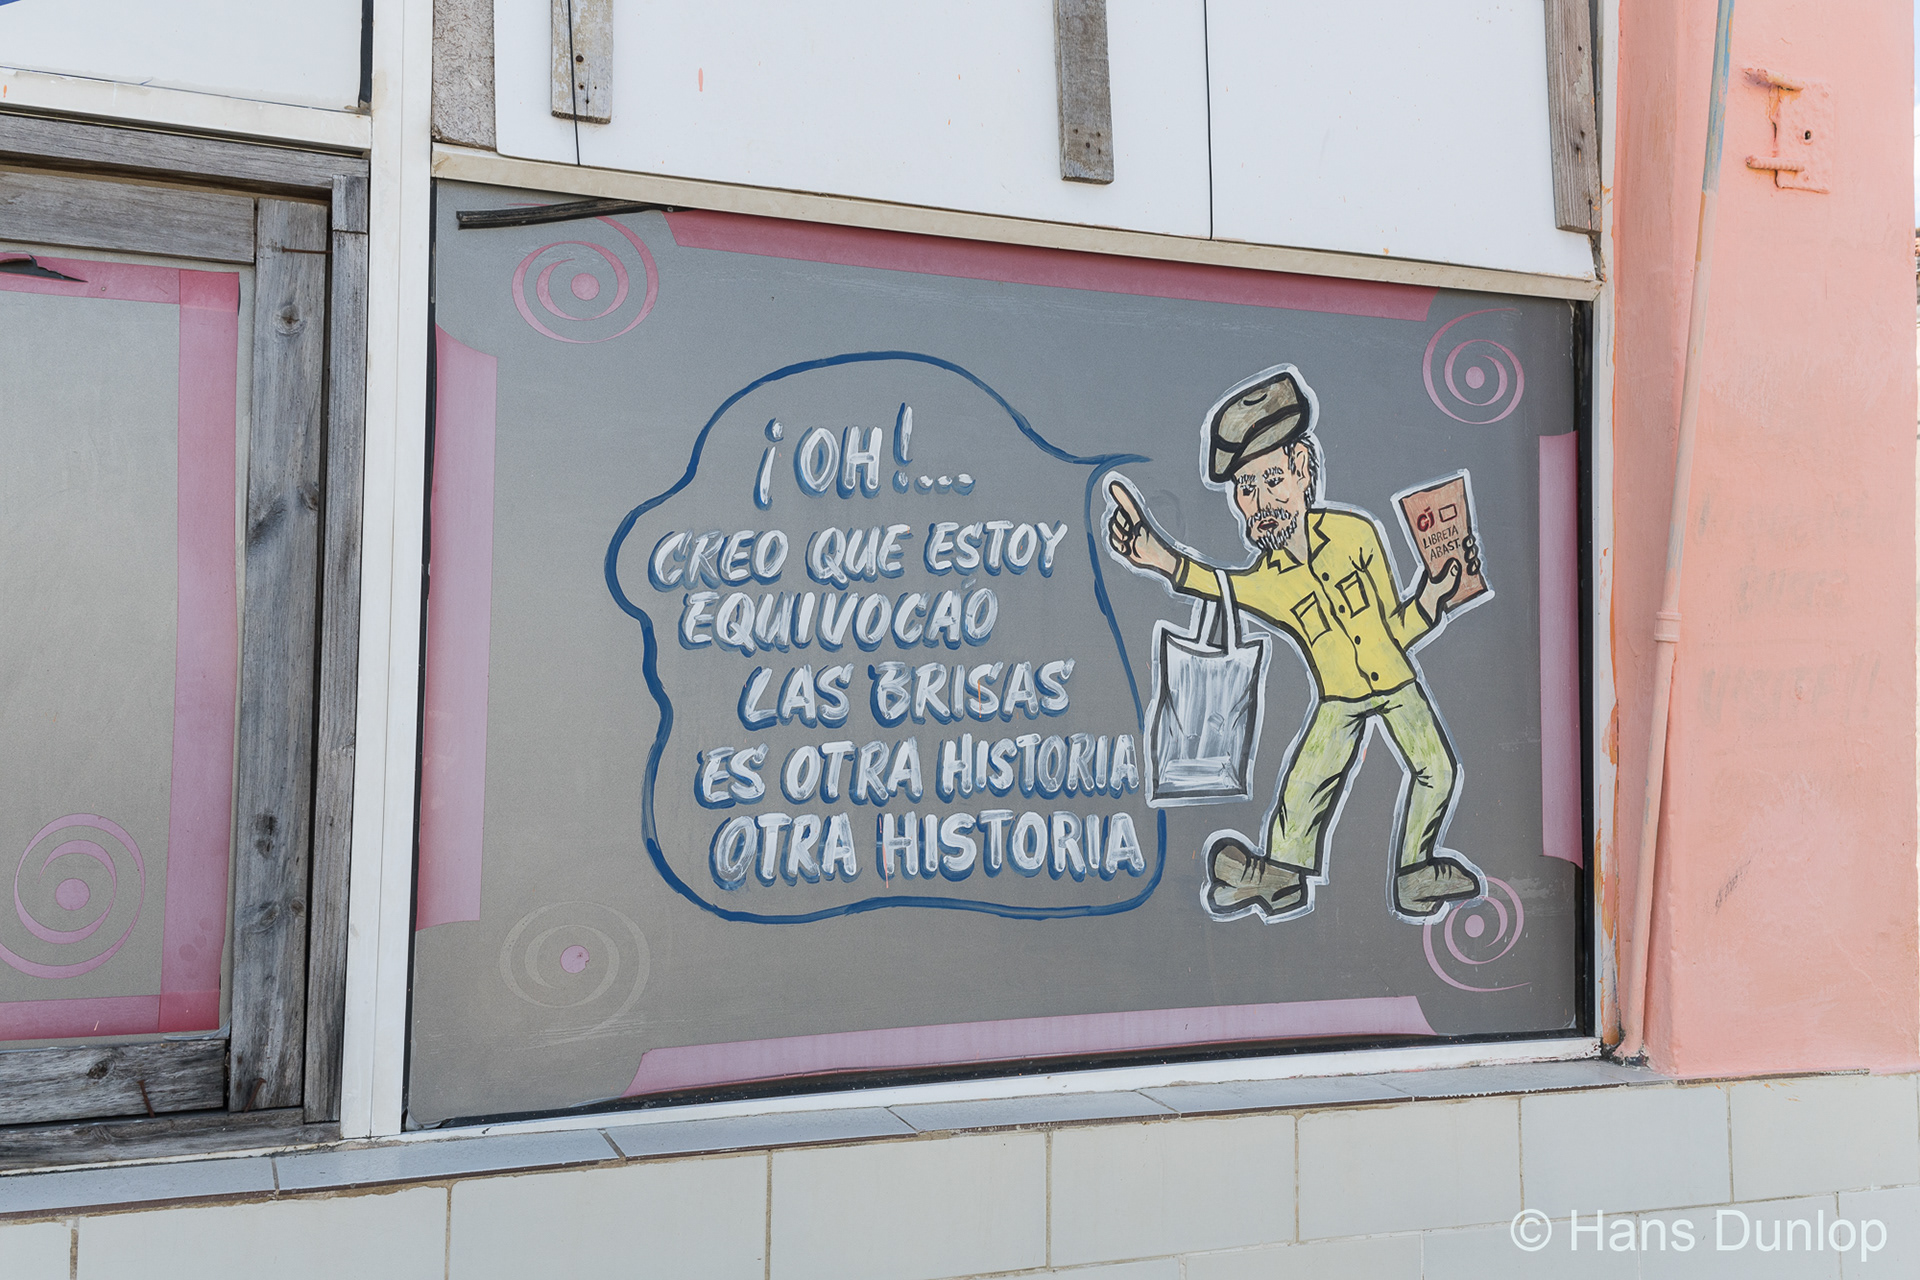 ¡OH!...
CREO QUE ESTOY
EQUIVOCAÓ
LAS BRISAS
ES OTRA HISTORIA
OTRA HISTORIA
CÍ
LIBRETA
ABAST.
© Hans Dunlop